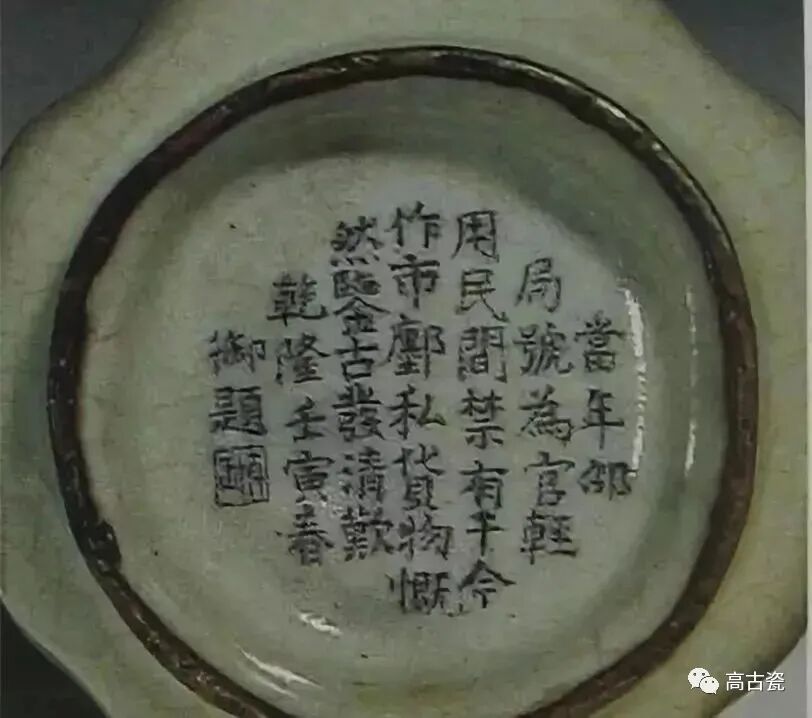 當年邵
局號為官輕
用民間禁有干今
作市鄽私貨物慨
然鑒古發清歎
乾隆壬寅春
御題
高古瓷